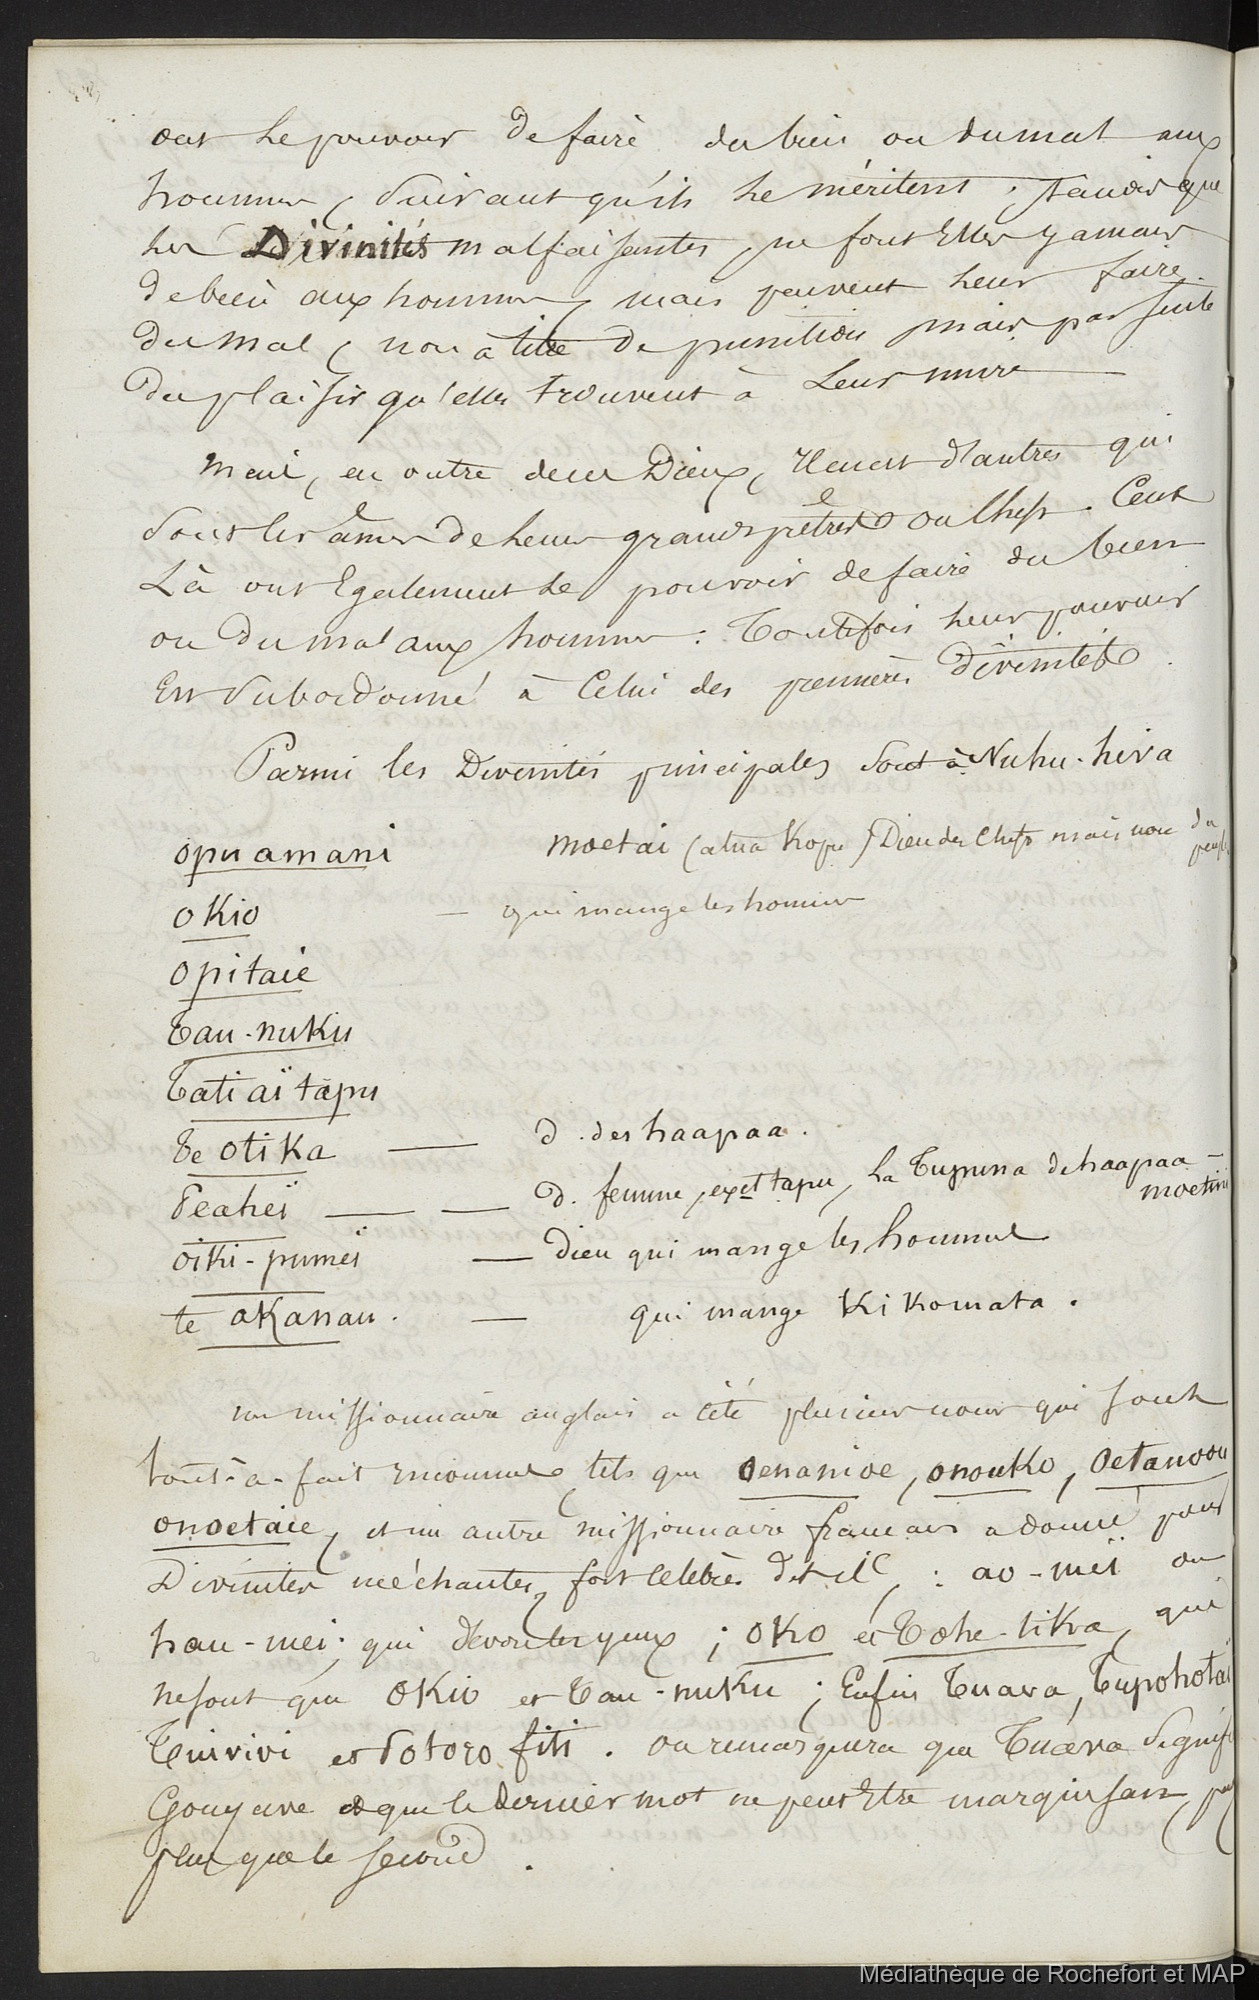 ont le pouvoir de faire du bien ou du mal aux
hommes, suivant qu'ils le méritent ; tandis que
les Divinités malfaisantes, ne font Elles jamais
de bien aux hommes, mais peuvent leur faire
du mal, non à titre de punition, mais par suite
du plaisir qu'elles trouvent à Leur nuire
Mais, en outre de ces Dieux, il en est d'autres qui
sont les âmes de leurs grands prêtres ou Chefs. Ceux
Là ont Egalement le pouvoir de faire du bien
ou du mal aux hommes : Toutefois leur pouvoir
Est subordonné à Celui des premières divinités.
Parmi les Divinités principales sont à Nuhu-hiva
opuamani moetai (atua Kopu) Dieu des Chefs mais non du peuple
oKio — qui mange les hommes
opitaie
Tau-nuKu
Tatiaï tapu
Te otiKa — d. des haapaa.
Teaheï — — d. femme, exct tapu, la Tupuna de haapaa-
moetini
oiki-pumeï — Dieu qui mange les hommes
te oKanau. — qui mange KiKomata.
un missionnaire anglais a cité plusieurs noms qui sont
tout-à-fait inconnus, tels que oenanioe, onouKo, oetanoou
onoetaie, et un autre missionnaire français a donné pour
Divinités méchantes, fort Célèbres dit il, : ao-meï ou
hau-meï ; qui dévore les yeux ; oKo et Tohe-tiKa, qui
ne sont que oKio et Tau-nuKu ; Enfin Tuava, Tupohotaï
Tuivivi et Sotoro fiti. on remarquera que Tuava signifie
Gouyave et que le dernier mot ne peut Etre marquisan, pas
plus que le second.
Médiathèque de Rochefort et MAP